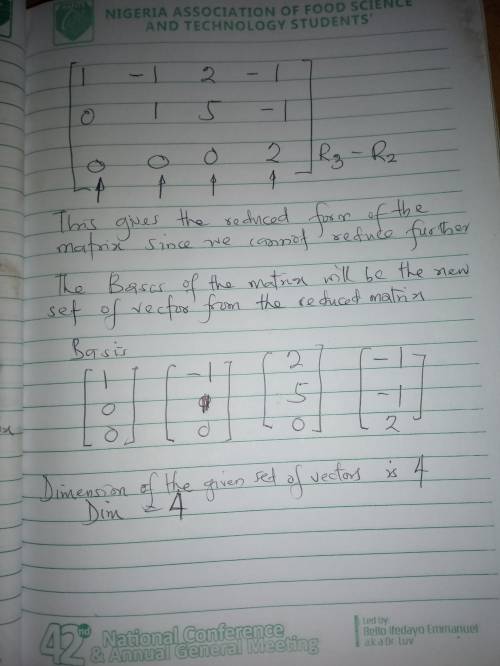 NIGERIA ASSOCIATION OF FOOD SCIENCE
AND TECHNOLOGY STUDENTS'
1 -1 2 -1
0 1 5 -1
0 0 0 2 R3 - R2
This gives the reduced form of the
matrix since we cannot reduce further
The Basis of the matrix will be the new
set of vector from the reduced matrix
Basis
1 -1 2 -1
0 5 -1
0 0 0 2
Dimension of the given set of vectors is 4
Dim = 4
42nd National Conference
& Annual General Meeting
Led by:
Bello Ifedayo Emmanuel
a.k.a Dr. Luv